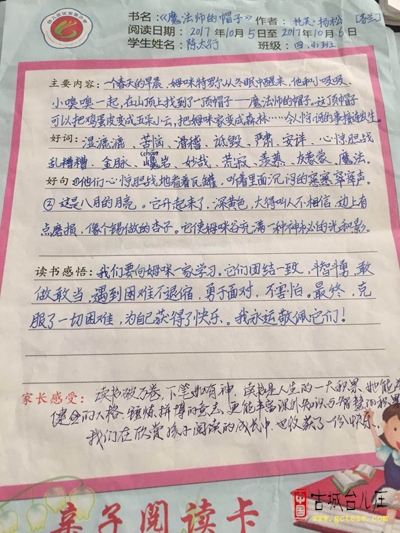 书名:《魔法师的帽子》 作者:托芙·扬松(芬兰)
阅读日期:2017年10月5日至2017年10月6日
学生姓名:陈太行 班级:四、
主要内容:一个春天的早晨,姆咪特罗尔从冬眠中醒来,他和小吸吸、
小嗅嗅一起,在山顶上找到了一顶帽子——魔法师的帽子。这顶帽子
可以把鸡蛋皮变成五朵小云,把姆咪家变成森林……令人惊讶的事接连发生。
好词:湿漉漉、苦恼、滑稽、诋毁、严肃、安详、心惊胆战
乱糟糟、金脉、岩、妙哉、荒寂、魔法。
好句①他们心惊胆战地看着瓦罐,听着里面沉闷的窸窸窣窣声。
②这是八月的月亮。它升起来了,深黄色,大得叫人不相信,边上有
点磨损,像个锡做的杏子。它使姆咪谷充满一种神秘的光和影。
读书感悟:我们要向姆咪一家学习,它们团结一致,智博,敢
做敢当,遇到困难不退宿,勇于面对,不害怕。最终,克
服了一切困难,为自己获得了快乐。我永运敬佩它们!
家长感受:读书破万卷,下笔如有神,读书是人生的一大积累,她能
健的人格、锤炼拼搏的意志,更能丰富课外知识与智慧的积累
我们在欣赏孩子阅读的成长中也收获了一份快乐。
亲子阅读卡
中国 古城台儿庄
www.gctezw.com